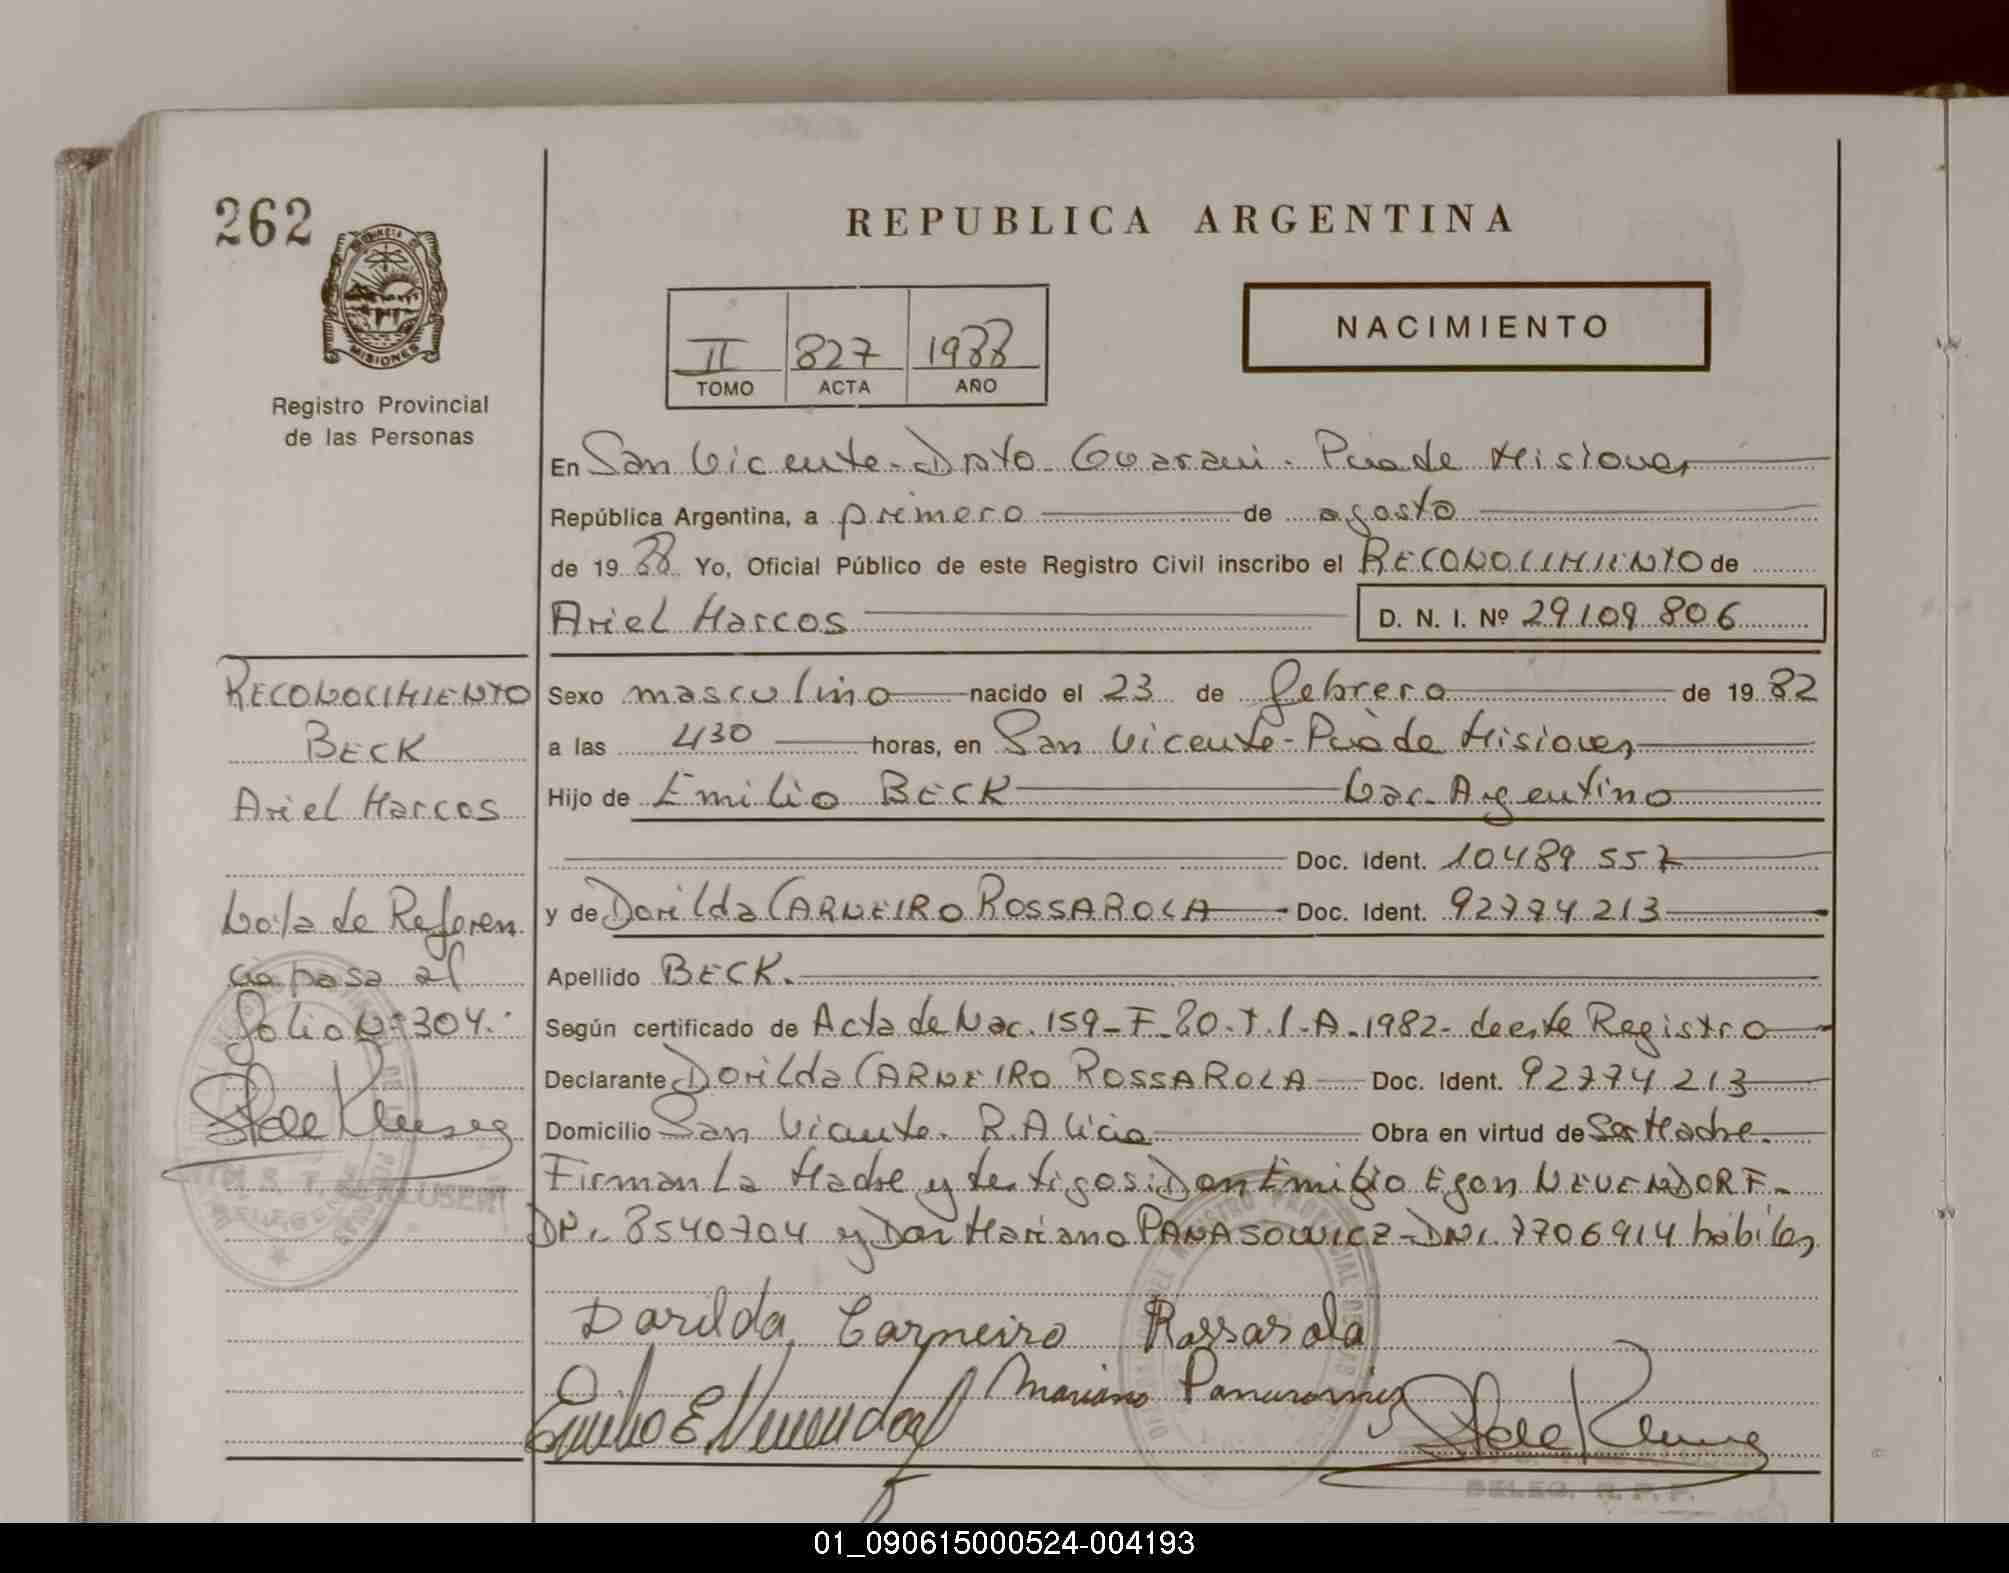 262
REPUBLICA ARGENTINA
PROVINCIA DE
MISIONES
Registro Provincial
de las Personas
II 827 1988
TOMO ACTA AÑO
NACIMIENTO
En San Vicente - Dpto Guarani - Pcia de Misiones
República Argentina, a primero de agosto
de 1988 Yo, Oficial Público de este Registro Civil inscribo el RECONOCIMIENTO de
Ariel Marcos D. N. I. Nº 29109806
RECONOCIMIENTO
BECK
Ariel Marcos
Nota de Referen
cia pasa al
folio Nº 304.
Sexo masculino nacido el 23 de febrero de 1982
a las 430 horas, en San Vicente - Pcia de Misiones
Hijo de Emilio BECK Nac. Argentino
Doc. Ident. 10489557
y de Dorilda CARNEIRO ROSSAROLA Doc. Ident. 92774213
Apellido BECK.
Según certificado de Acta de Nac. 159-F-80-T.I-A-1982- de este Registro
Declarante Dorilda CARNEIRO ROSSAROLA Doc. Ident. 92774213
Domicilio San Vicente. R.A Obra en virtud de Ser Madre.
Firman La Madre y testigos: Don Emilio Egon NEUENDORF-
DNI. 8540704 y Don Mariano PANASOWICZ-DNI. 7706914 hábiles
Darilda Carneiro Rossarola
Emilio E. Neuendorf Mariano
DELEG. R. P. P.
01_090615000524-004193